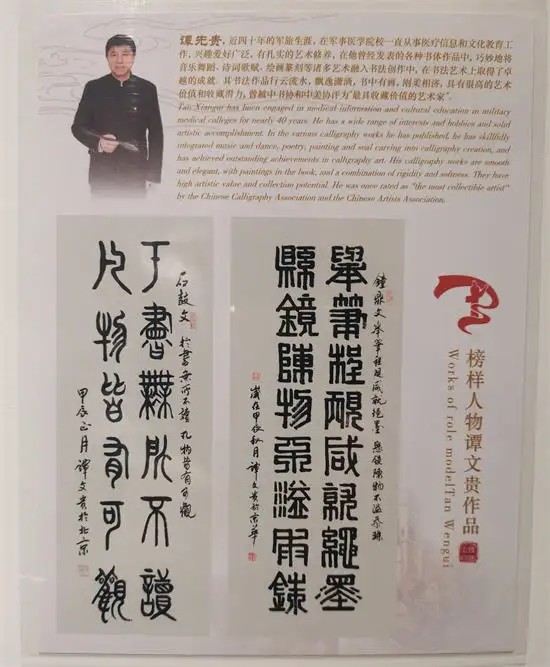 谭先贵，近四十年的军旅生涯，在军事医学院校一直从事医疗信息和文化教育工
作，兴趣爱好广泛，有扎实的艺术修养，在他曾经发表的各种书体作品中，巧妙地将
音乐舞蹈、诗词歌赋、绘画篆刻等诸多艺术融入书法创作中，在书法艺术上取得了卓
越的成就。其书法作品行云流水，飘逸潇洒，书中有画，刚柔相济，具有很高的艺术
价值和收藏潜力，曾被中书协和中美协评为"最具收藏价值的艺术家"。
Tan Xiangui has been engaged in medical information and cultural education in military
medical colleges for nearly 40 years. He has a wide range of interests and hobbies and solid
artistic accomplishment. In the various calligraphy works he has published, he has skillfully
integrated music and dance, poetry, painting and seal carving into calligraphy creation, and
has achieved outstanding achievements in calligraphy art. His calligraphy works are smooth
and elegant, with paintings in the book, and a combination of rigidity and softness. They have
high artistic value and collection potential. He was once rated as "the most collectible artist"
by the Chinese Calligraphy Association and the Chinese Artists Association.
榜样人物谭文贵作品
Works of role modelTan Wengui
鐘鼎文
舉筆程規咸就繩墨
縣鏡陳物不溢銖
歲在甲辰秋月 谭文贵於京華
石鼓文 於書無所不讀 凡物皆有可觀
于書無所不讀
凡物皆有可觀
甲辰正月 谭文贵於北京